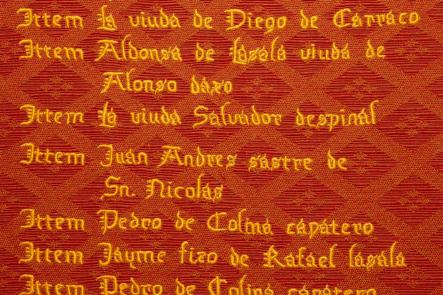 Ittem La viuda de Diego de Carraco
Ittem Aldonsa de Lasala viuda de
Alonso daxo
Ittem La viuda Salvador despinal
Ittem Juan Andres sastre de
Sn. Nicolas
Ittem Pedro de Colma capatero
Ittem Jayme fizo de Rafael lasala
Ittem Pedro de Colina capatero